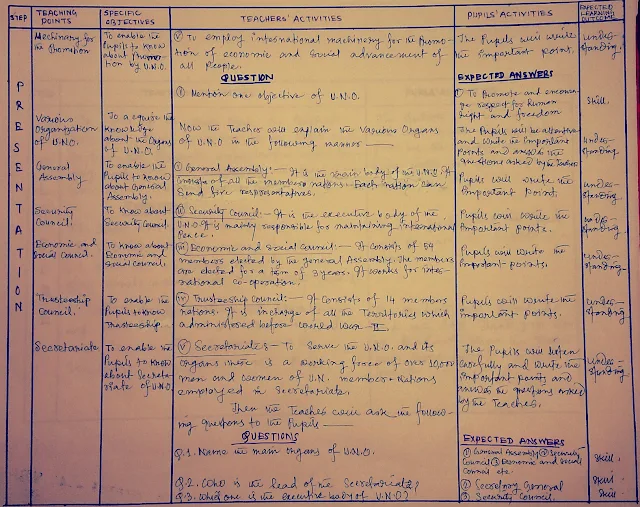 STEP
TEACHING POINTS
SPECIFIC OBJECTIVES
TEACHERS' ACTIVITIES
PUPILS' ACTIVITIES
EXPECTED LEARNING OUTCOME
PRESENTATION
Mechinery for the Promotion
To enable the
Pupils to know
about Promotion
by U.N.O.
(V) To employ international machinery for the Promo-
tion of economic and Social advancement of
all People.
The Pupils will write
the important point.
under-
standing.
QUESTION
EXPECTED ANSWERS
(1) Mention one objective of U.N.O.
(1) To Promote and encour-
age respect for human
right and freedom
Skill.
Various
Organization
of U.N.O.
To acquire the
Knowledge
about the Organs
of U.N.O.
Now the Teacher will explain the Various Organs
of U.N.O in the following manner —
The Pupils will be attentive
and write the Important
Points and answer the
questions asked by the Teacher.
under-
standing.
General
Assembly.
To enable the
Pupils to know
about General
Assembly.
(i) General Assembly:- It is the main body of the U.N.O. It
consists of all the members nations. Each nation can
Send five representatives.
Pupils will write the
Important Point.
under-
standing.
Security
Council.
To know about
Security
Council.
(ii) Security Council:- It is the executive body of the
U.N.O It is mainly responsible for maintaining international
Peace.
Pupils will write the
Important Points.
under-
standing
Economic and
Social Council.
To know about
Economic and
Social Council.
(iii) Economic and Social Council:- It consists of 54
members elected by the General Assembly. The members
are elected for a term of 3 years. It works for inter-
national co-operation.
Pupils will write the
Important Points.
under-
standing.
Trusteeship
Council.
To enable the
Pupils to know
Trusteeship.
(iv) Trusteeship Council:- It consists of 14 members
nations. It is incharge of all the Territories which
administered before World War II.
Pupils will write the
important points.
under-
standing
Secretariate
To enable the
Pupils to know
about Secreta-
riate of U.N.O.
(V) Secretariate:- To Serve the U.N.O. and its
organs there is a working force of over 10,000
men and women of U.N. member Nations
employed in Secretariate.
The Pupils will listen
carefully and write the
Important points and
answer the questions asked
by the Teacher.
under-
standing.
Then the Teacher will ask the follow-
ing questions to the Pupils —
QUESTIONS
EXPECTED ANSWERS
Q.1. Name the main organs of U.N.O.
(1) General Assembly (2) Security
Council (3) Economic and Social
Council etc.
Skill.
Q.2. Who is the head of the Secretariate?
(2) Secretary General
Skill
Q.3. Which one is the executive body of U.N.O?
(3) Security Council.
Skill